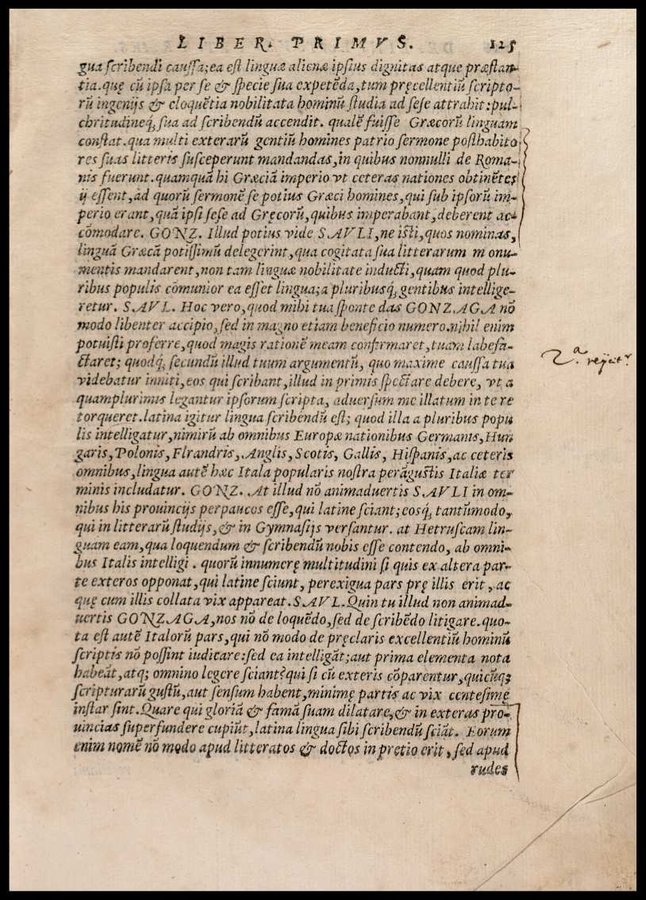 LIBER. PRIMVS. 125
gua scribendi caussa; ea est linguæ alienæ ipsius dignitas atque præstan-
tia. quę cũ ipsa per se & specie sua expetẽda, tum pręcellentiũ scripto-
rũ ingenijs & eloquẽtia nobilitata hominũ studia ad sese attrahit: pul-
chritudineq́; sua ad scribendũ accendit. qualẽ fuisse Græcorũ linguam
constat. qua multi exterarũ gentiũ homines patrio sermone posthabito
res suas litteris susceperunt mandandas, in quibus nonnulli de Roma-
nis fuerunt. quamquã hi Græciã imperio vt ceteras nationes obtinẽtes
ij essent, ad quorũ sermonẽ se potius Græci homines, qui sub ipsorũ im-
perio erant, quã ipsi sese ad Gręcorũ, quibus imperabant, deberent ac-
cõmodare. GONZ. Illud potius vide SAVLI, ne isti, quos nominas,
linguã Græcã potissimũ delegerint, qua cogitata sua litterarum monu-
mentis mandarent, non tam linguæ nobilitate inducti, quam quod plu-
ribus populis cõmunior ea esset lingua; a pluribusq́; gentibus intellige-
retur. SAVL. Hoc vero, quod mihi tua sponte das GONZAGA nõ
modo libenter accipio, sed in magno etiam beneficio numero. nihil enim
potuisti proferre, quod magis rationẽ meam confirmaret, tuam labefa-
ctaret; quodq́; secundũ illud tuum argumentũ, quo maxime caussa tua
videbatur inniti, eos qui scribant, illud in primis spectare debere, vt a
quamplurimis legantur ipsorum scripta, aduersum me illatum in te re
torqueret. latina igitur lingua scribendũ est; quod illa a pluribus popu
lis intelligatur, nimirũ ab omnibus Europæ nationibus Germanis, Hun
garis, Polonis, Flrandris, Anglis, Scotis, Gallis, Hispanis, ac ceteris
omnibus, lingua autẽ hæc Itala popularis nostra perãgustis Italiæ ter
minis includatur. GONZ. At illud nõ animaduertis SAVLI in om-
nibus his prouincijs perpaucos esse, qui latine sciant; eosq́; tantũmodo,
qui in litterarũ studijs, & in Gymnasijs versantur. at Hetruscam lin-
guam eam, qua loquendum & scribendũ nobis esse contendo, ab omni-
bus Italis intelligi. quorũ innumerę multitudini si quis ex altera par-
te exteros opponat, qui latine sciunt, perexigua pars prę illis erit, ac
quę cum illis collata vix appareat. SAVL. Quin tu illud non animad-
uertis GONZAGA, nos nõ de loquẽdo, sed de scribẽdo litigare. quo-
ta est autẽ Italorũ pars, qui nõ modo de pręclaris excellentiũ hominũ
scriptis nõ possint iudicare: sed ea intelligãt; aut prima elementa nota
habeãt, atq; omnino legere sciant? qui si cũ exteris cõparentur, quicũq;
scripturarũ gustũ, aut sensum habent, minimę partis ac vix centesimę
instar sint. Quare qui gloriã & famã suam dilatare, & in exteras pro-
uincias superfundere cupiũt, latina lingua sibi scribendũ sciãt. Eorum
enim nomẽ nõ modo apud litteratos & doctos in pretio erit, sed apud
rudes